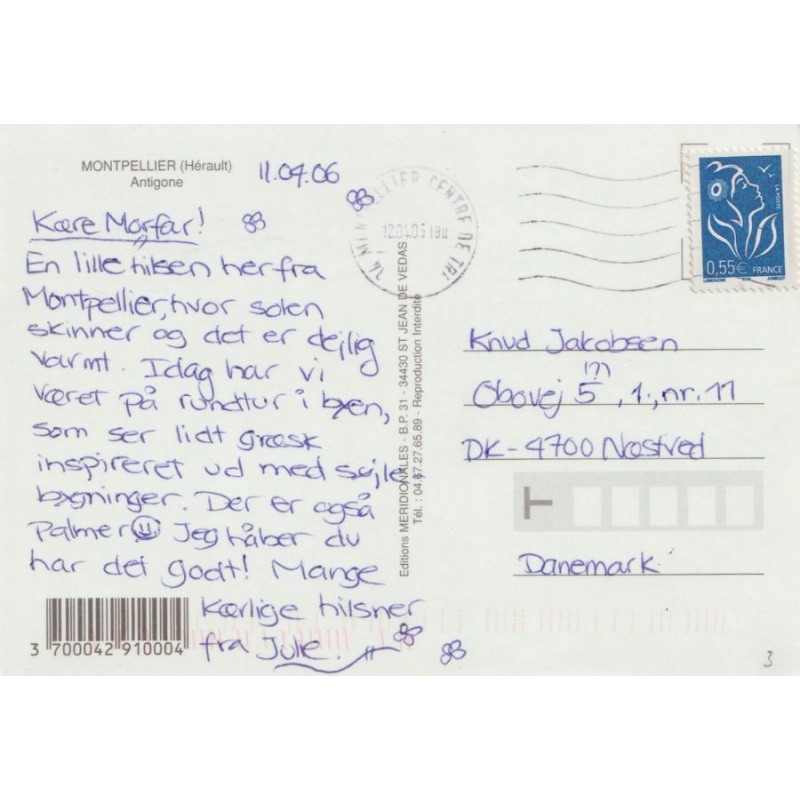 MONTPELLIER (Hérault)
Antigone
11.04.06
Kære Morfar!
En lille hilsen herfra
Montpellier, hvor solen
skinner og det er dejlig
varmt. Idag har vi
været på rundtur i byen,
som ser lidt græsk
inspireret ud med søjle,
bygninger. Der er også
Palmer Jeg håber du
har det godt! Mange
Kærlige hilsner
fra Julie.
3 700042 910004
Editions MERIDIONALES - B.P. 31 - 34430 ST JEAN DE VEDAS
Tél. : 04.67.27.65.89 - Reproduction Interdite
34 MONTPELLIER CENTRE DE TRI
LA POSTE
0,55€ FRANCE
Knud Jakobsen
(?)
Obovej 5, 1., nr. 11
DK-4700 Næstved
Danemark
3